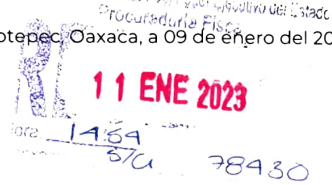 Procuraduría Fis
otepec, Oaxaca, a 09 de enero del 20
11 ENE 2023
ora 14:54
S/A 78430